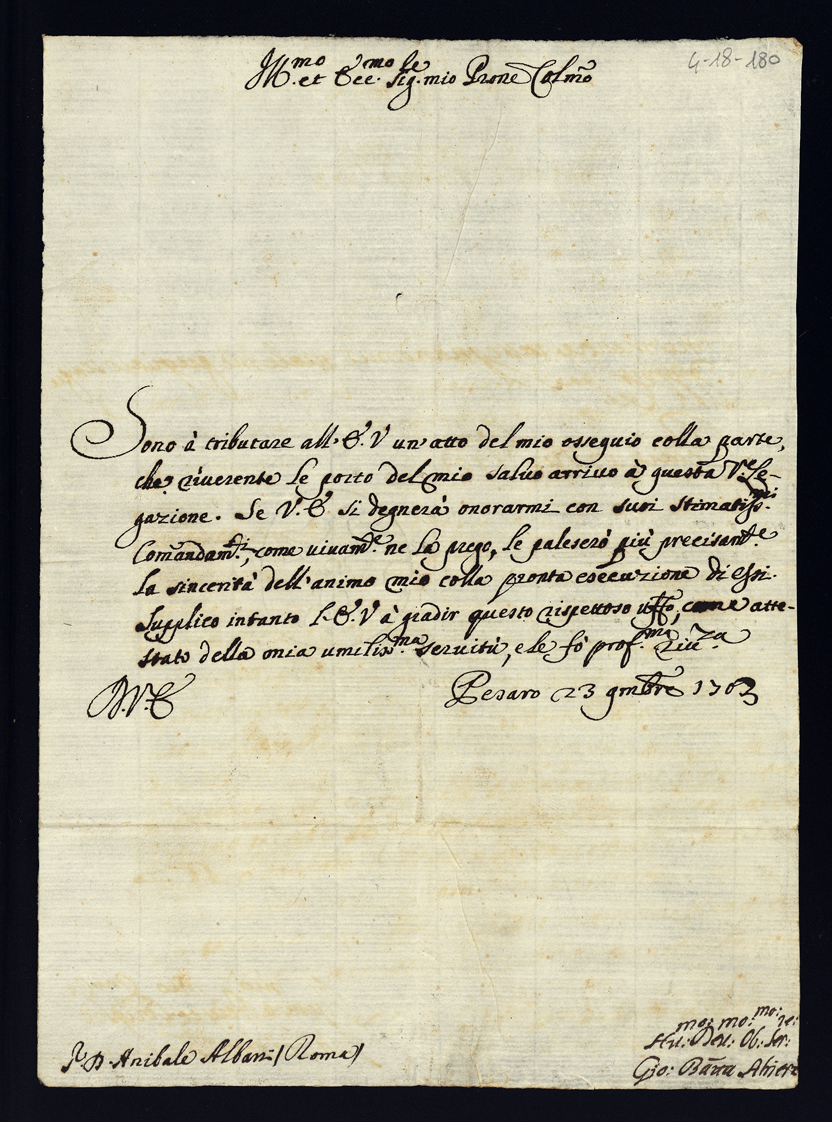 Ill.mo et Ecc.mo Sig.le mio Prone Colmo
4-18-180
Sono à tributare all'E.V un atto del mio ossequio colla parte,
che riverente le porto del mio salvo arrivo à questa Le-
gazione. Se V.E si degnerà onorarmi con suoi stimatiss.mi
Comandam.ti, come vivam.te ne la prego, le paleserò più precisam.te
la sincerità dell'animo mio colla pronta esecuzione di essi.
Supplico intanto l'E.V à gradir questo rispettoso uffo, come atte-
stato della mia umiliss.ma servitù, e le fò prof.ma riv.za
D.V.E
Pesaro 23 9mbre 1703
D. Anibale Albani (Roma)
mo: mo: mo: re:
Hu: Dev: Ob: Ser:
Gio: Batta